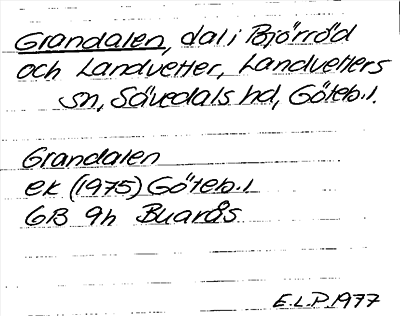 Grandalen, dal i Björröd
och Landvetter, Landvetters
sn, Sävedals hd, Göteb.l.
Grandalen
ek (1975) Göteb.l
6B 9h Buarås
E.L.P. 1977